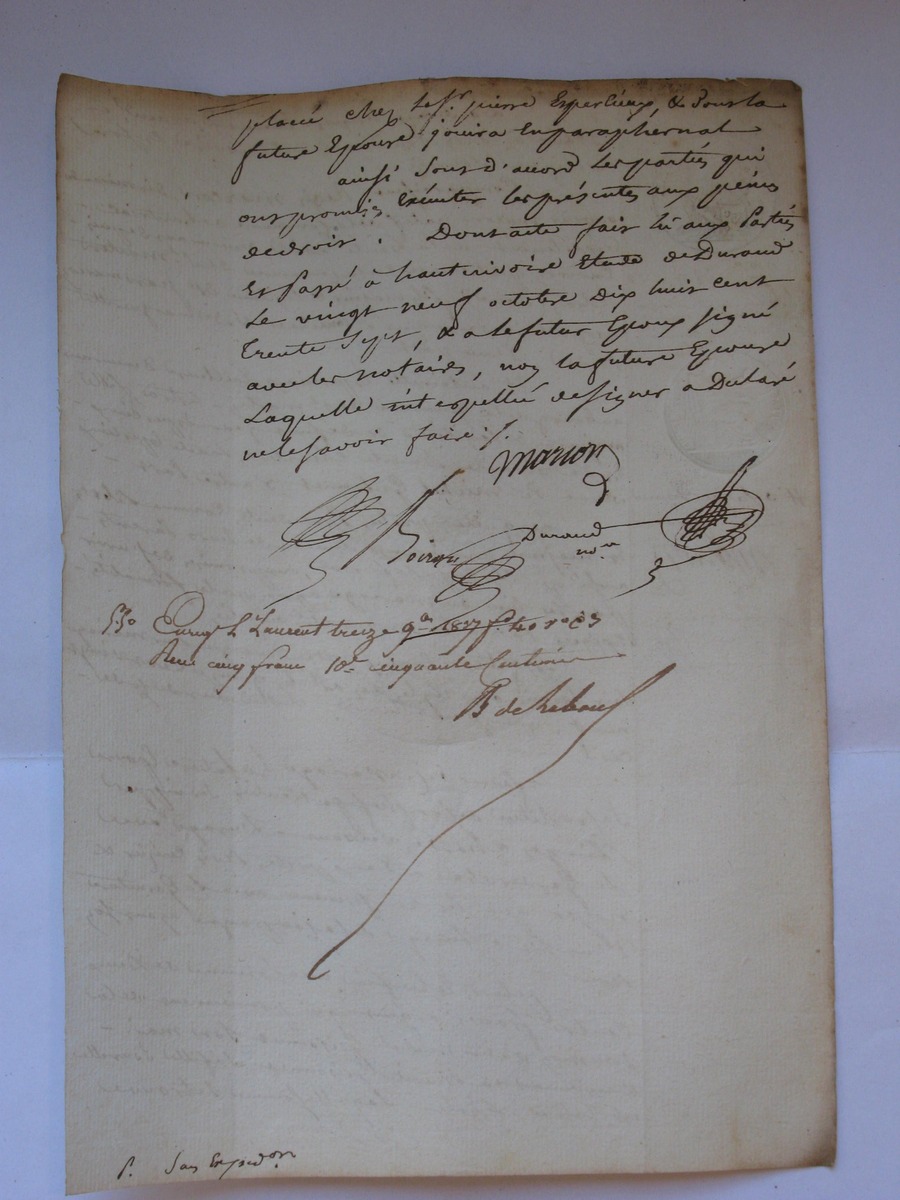 placé chez le Sr pierre Esperlieux & dont la
future Epouse jouira en paraphernal
ainsi sont d'accord les parties qui
ont promis exécuter les présentes aux peines
de droit. Dont acte fait lu aux Parties
Et Passé à hauterivoire Etude de Durand
Le vingt neuf octobre dix huit cent
trente sept, & a le futur Epoux signé
avec les notaires, non la future Epouse
Laquelle interpellée de signer a Déclaré
ne le savoir faire ./.
Marion
Durand
nore
530 Enregé St Laurent treize 9bre 1837 fo 40 ro C3
Reçu cinq francs 10me cinquante Centimes
sans Expedon